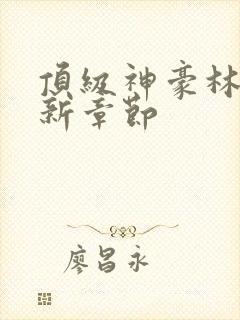 頂級神豪林
新章節
廖昌永